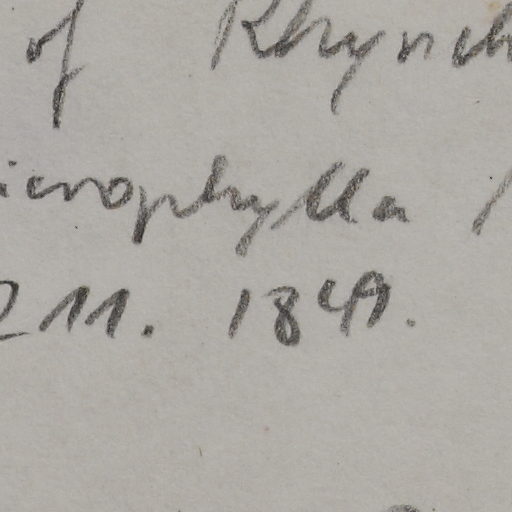 of Rhynch
icrophylla
211. 1849.